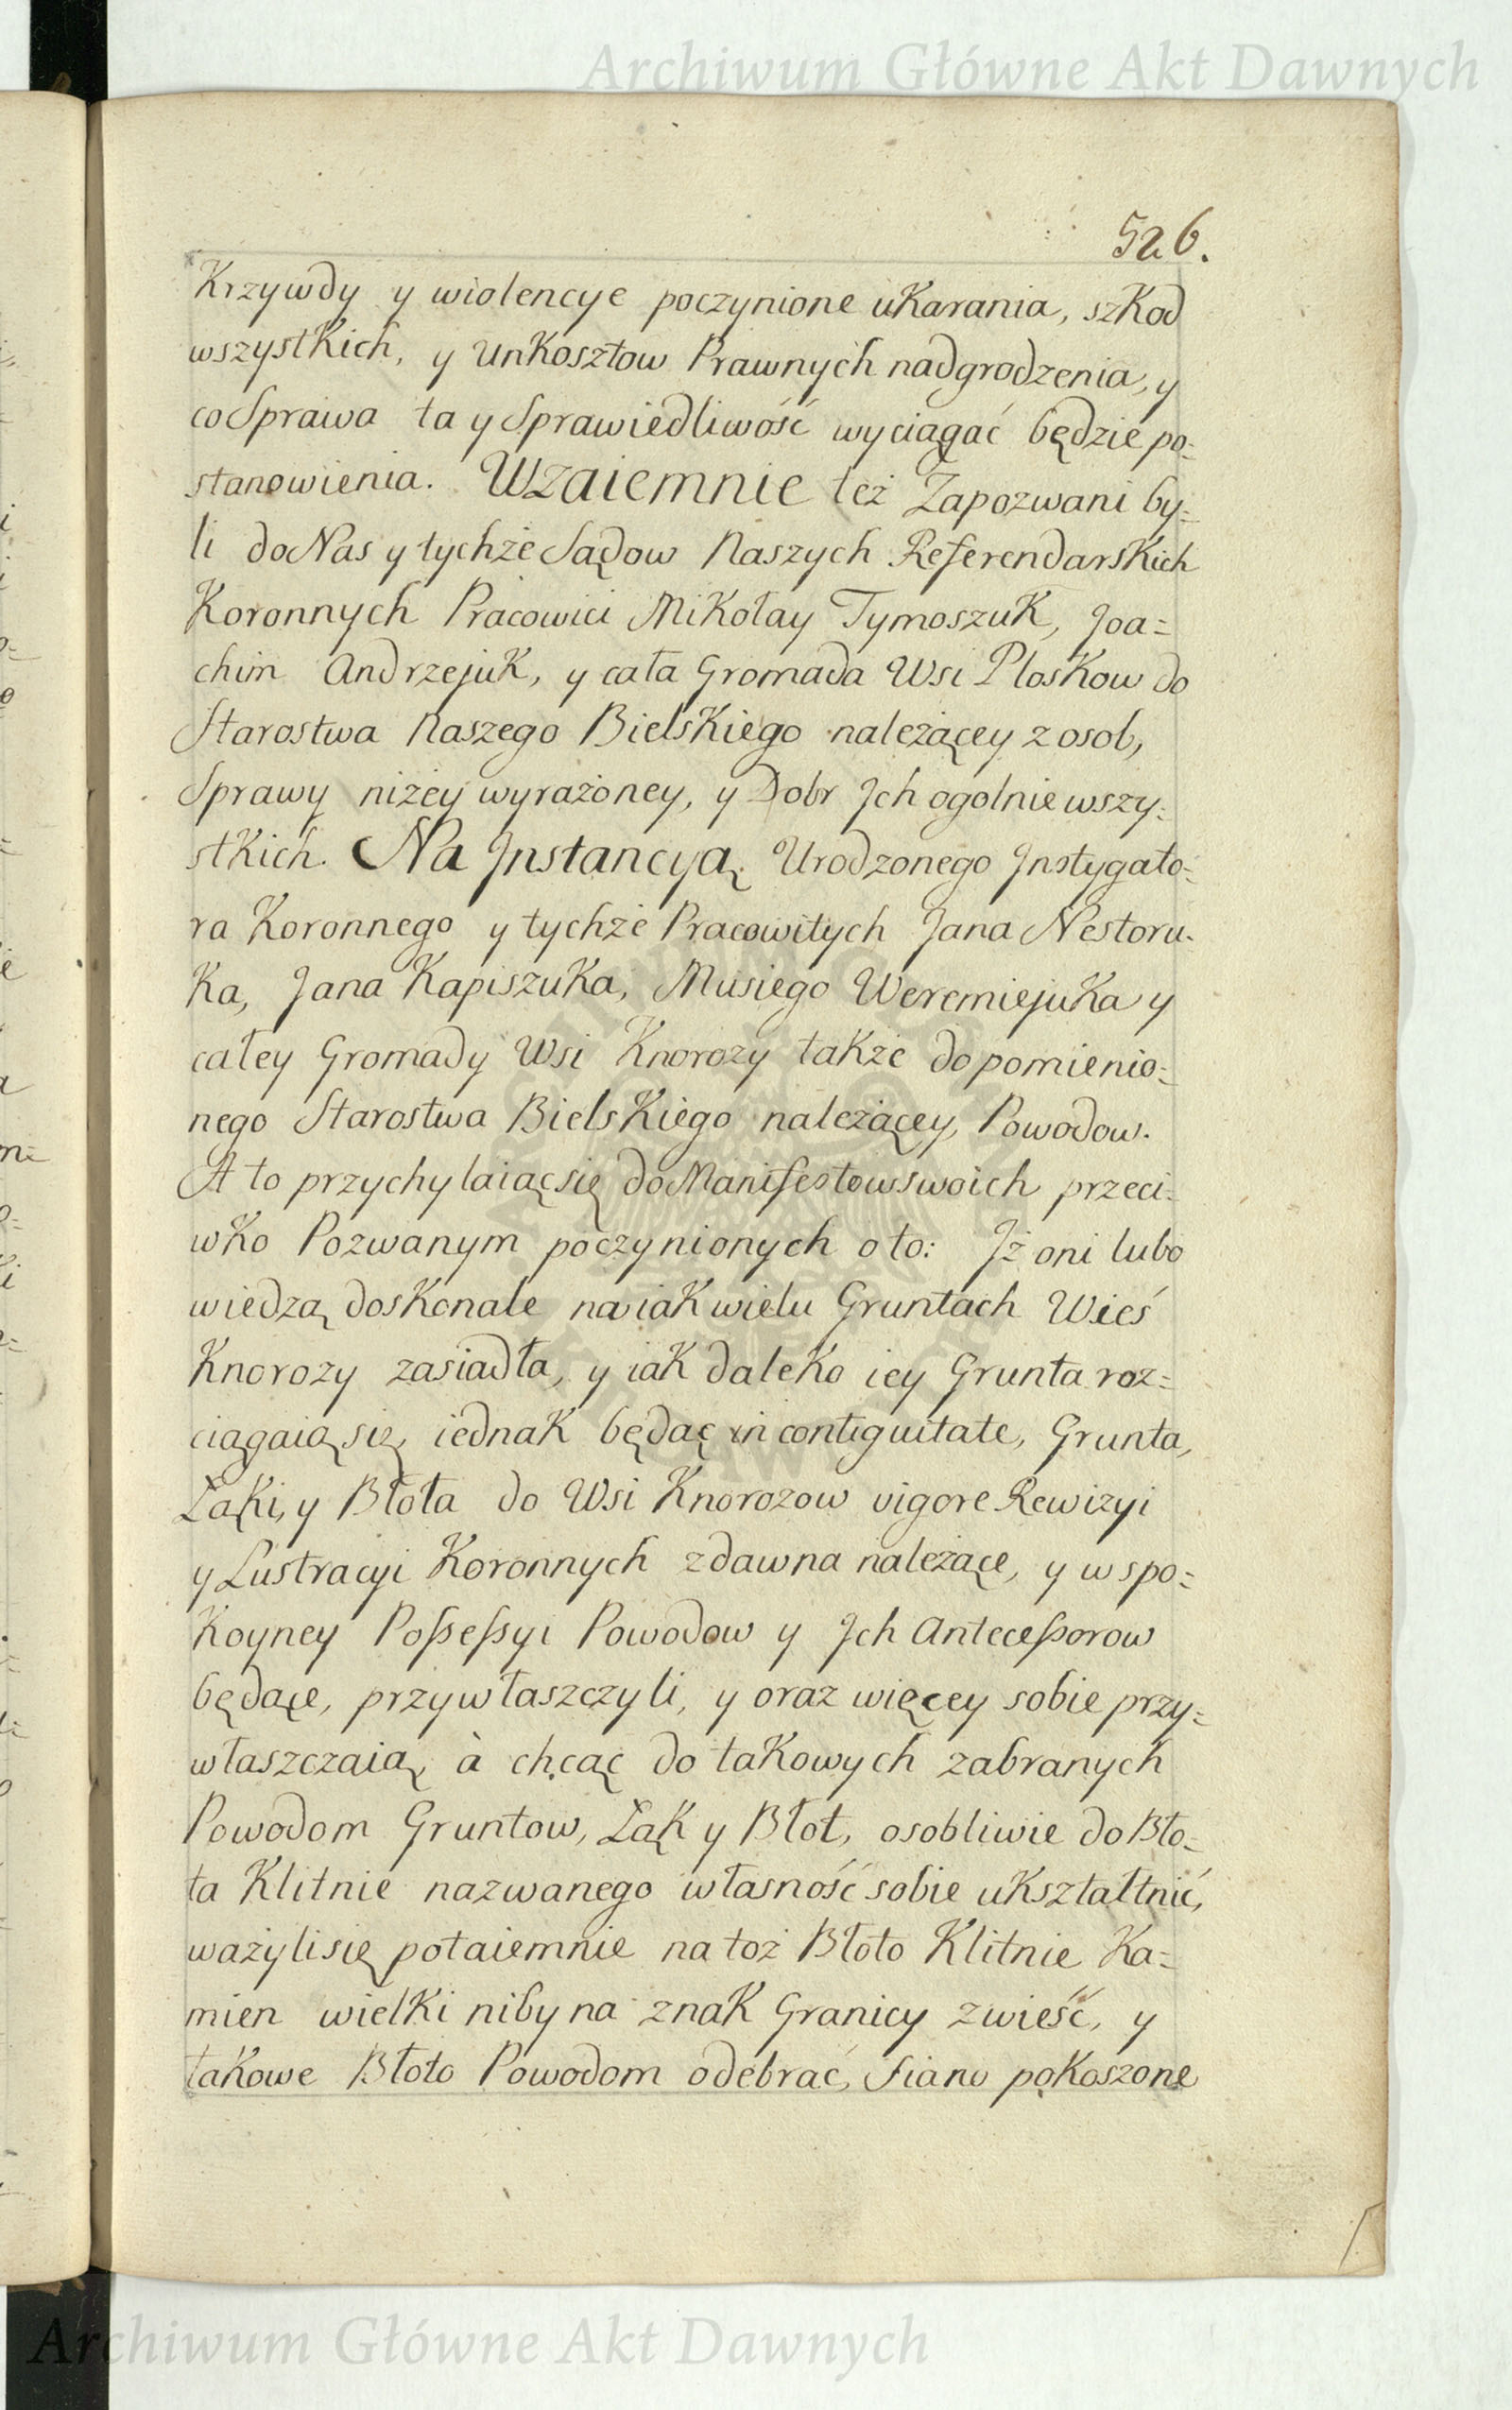 Archiwum Główne Akt Dawnych
526.
Krzywdy y wiolencye poczynione ukarania, szkod
wszystkich, y unkosztow Prawnych nadgrodzenia, y
co Sprawa ta y Sprawiedliwość wyciągać będzie po=
stanowienia. Wzaiemnie też Zapozwani by=
li do Nas y tychże Sądow Naszych Referendarskich
Koronnych Pracowici Mikołay Tymoszuk, Joa=
chim Andrzejuk, y cała Gromada Wsi Ploskow do
Starostwa Naszego Bielskiego należącey z osob,
Sprawy niżey wyrażoney, y Dobr Jch ogolnie wszy=
stkich. Na Jnstancyą Urodzonego Jnstygato=
ra Koronnego y tychże Pracowitych Jana Nestoru=
ka, Jana Kapiszuka, Musiego Weremiejuka y
całey Gromady Wsi Knorozy także do pomienio=
nego Starostwa Bielskiego należącey, Powodow.
A to przychylaiąc się do Manifestow swoich przeci=
wko Pozwanym poczynionych o to: Jż oni lubo
wiedzą doskonale na iak wielu Gruntach Wieś
Knorozy zasiadła, y iak daleko iey Grunta roz=
ciągaią się, iednak będąc in contiguitate, Grunta,
Łąki, y Błota do Wsi Knorozow vigore Rewizyi
y Lustracyi Koronnych zdawna należące, y w spo=
koyney Poſseſsyi Powodow y Jch Anteceſsorow
będące, przywłaszczyli, y oraz więcey sobie przy=
właszczaią, à chcąc do takowych zabranych
Powodom Gruntow, Łąk y Błot, osobliwie do Bło=
ta Klitnie nazwanego własność sobie ukształtnić,
ważyli się potaiemnie na toż Błoto Klitnie Ka=
mien wielki niby na znak Granicy zwieść, y
takowe Błoto Powodom odebrać, Siano pokoszone
Archiwum Główne Akt Dawnych